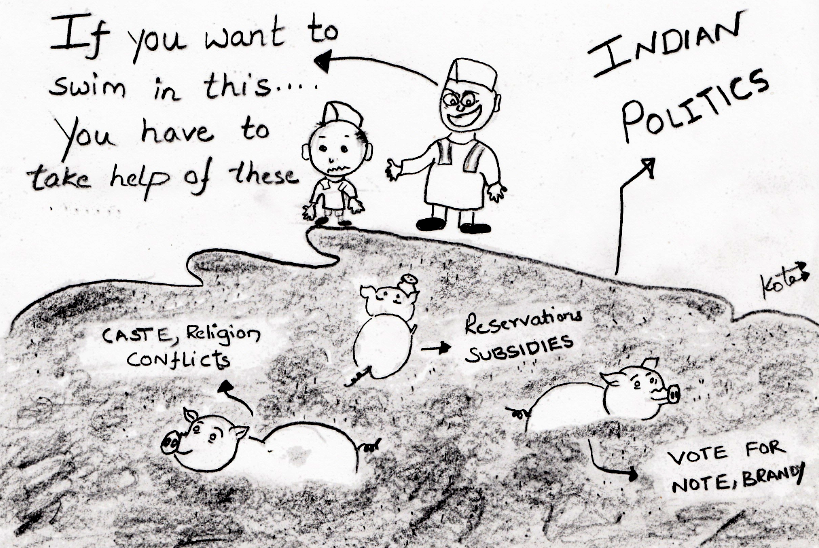 If you want to
swim in this....
You have to
take help of these
........
INDIAN
POLITICS
Kote
CASTE, Religion
CONflicTs
Reservations
SUBSIDIES
VOTE FOR
NOTE, BRANDY